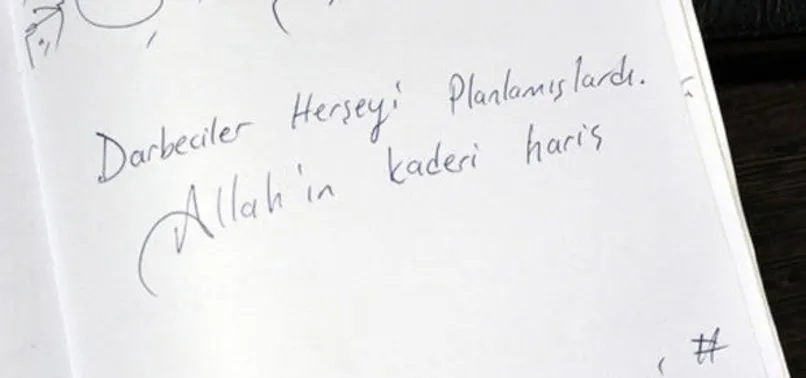 Darbeciler Herşeyi Planlamışlardı.
Allah'ın kaderi hariş
#